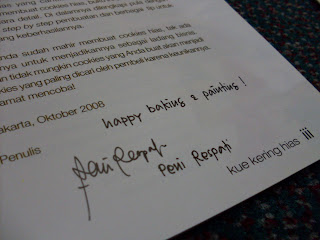 membuat cookies hias, buku
secara detail. Di dalamnya dilengkapi pula dengan
step by step pembuatan dan berbagai tip untuk
keberhasilannya.
Anda sudah mahir membuat cookies hias, tak ada
untuk menjadikannya sebagai ladang bisnis.
tidak mungkin cookies yang Anda buat akan menjadi
cookies yang paling dicari oleh pembeli karena keunikannya.
Selamat mencoba!
Jakarta, Oktober 2008
happy baking & painting !
Penulis
Peni Respati
Peni Respati
kue kering hias iii